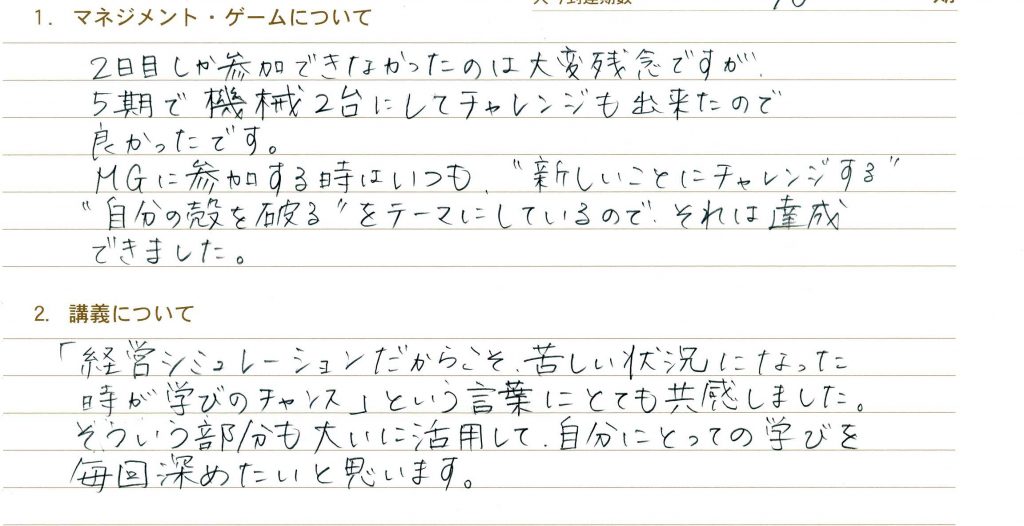 1. マネジメント・ゲームについて
2日目しか参加できなかったのは大変残念ですが、
5期で機械2台にしてチャレンジも出来たので
良かったです。
MGに参加する時はいつも、“新しいことにチャレンジする”
“自分の殻を破る”をテーマにしているので、それは達成
できました。
2. 講義について
「経営シミュレーションだからこそ、苦しい状況になった
時が学びのチャンス」という言葉にとても共感しました。
そういう部分も大いに活用して、自分にとっての学びを
毎回深めたいと思います。